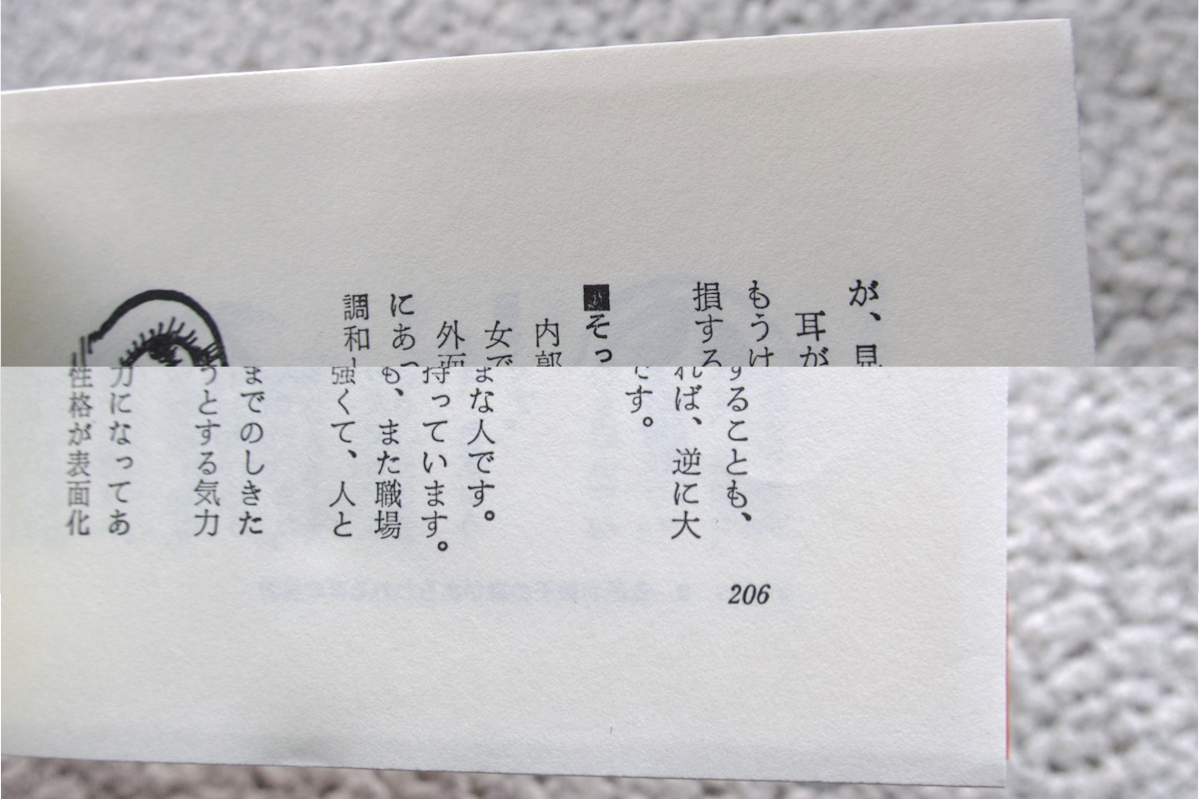 が、見
耳が
もうけ
損する
■そっ
内部
女で
外面
にあっ
調和
することも、
れば、逆に大
です。
まな人です。
持っています。
も、また職場
強くて、人と
までのしきた
うとする気力
力になってあ
性格が表面化
206